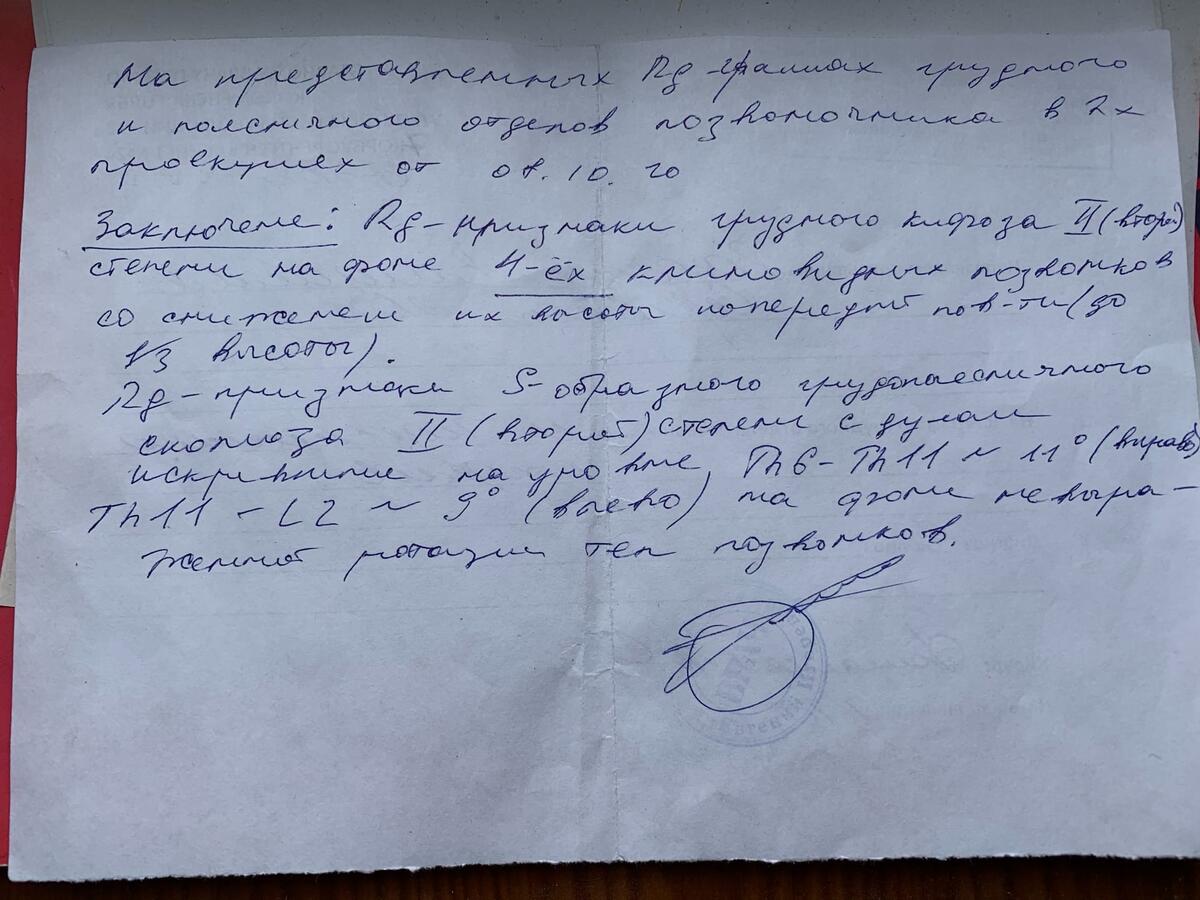 На представленных Rg-граммах грудного
и поясничного отделов позвоночника в 2х
проекциях от 07.10.20
Заключение: Rg-признаки грудного кифоза II (второй)
степени на фоне 4-ёх клиновидных позвонков
со снижением их высоты по передней пов-ти (до
1/3 высоты).
Rg-признаки S-образного грудопоясничного
сколиоза II (второй) степени с дугами
искривления на уровне Th6-Th11 ~ 11° (вправо)
Th11 - L2 ~ 9° (влево) на фоне невыра-
женной ротации тел позвонков.